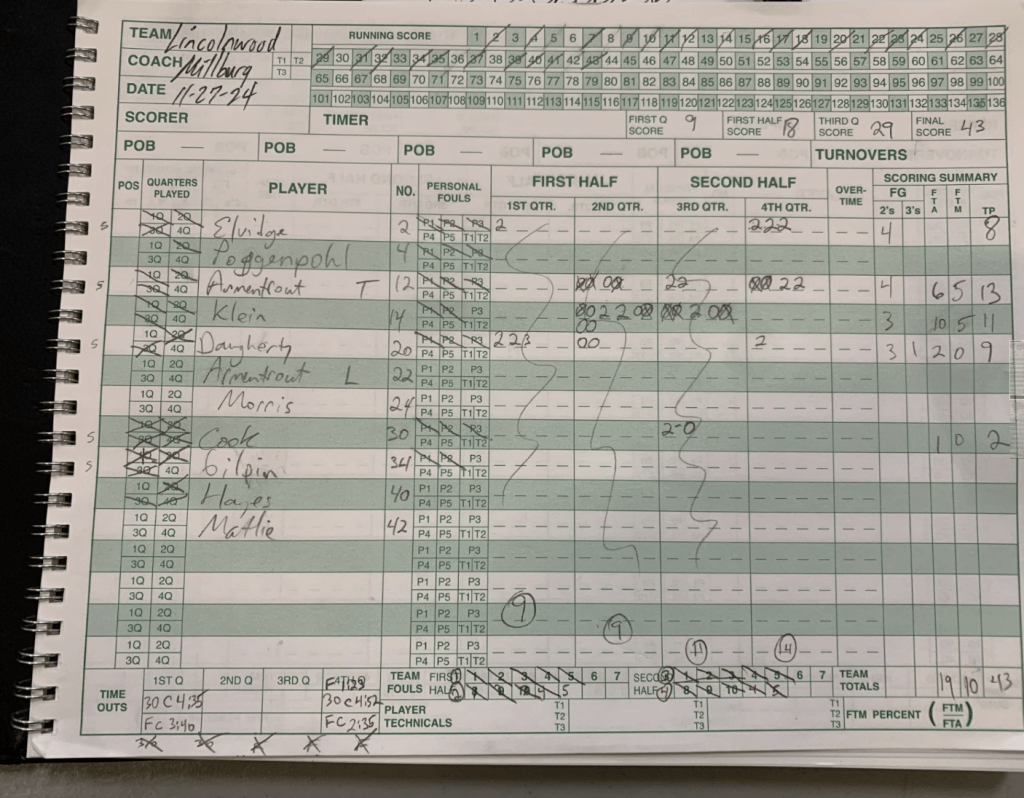 TEAM Lincolnwood RUNNING SCORE 1 2 3 4 5 6 7 8 9 10 11 12 13 14 15 16 17 18 19 20 21 22 23 24 25 26 27 28
COACH Millburg T1 T2 T3 29 30 31 32 33 34 35 36 37 38 39 40 41 42 43 44 45 46 47 48 49 50 51 52 53 54 55 56 57 58 59 60 61 62 63 64
65 66 67 68 69 70 71 72 73 74 75 76 77 78 79 80 81 82 83 84 85 86 87 88 89 90 91 92 93 94 95 96 97 98 99 100
DATE 11-27-24 101 102 103 104 105 106 107 108 109 110 111 112 113 114 115 116 117 118 119 120 121 122 123 124 125 126 127 128 129 130 131 132 133 134 135 136
SCORER TIMER FIRST Q SCORE 9 FIRST HALF SCORE 18 THIRD Q SCORE 29 FINAL SCORE 43
POB — POB — POB — POB — POB — TURNOVERS
POS QUARTERS PLAYED PLAYER NO. PERSONAL FOULS FIRST HALF SECOND HALF OVER-TIME SCORING SUMMARY
1ST QTR. 2ND QTR. 3RD QTR. 4TH QTR. FG 2's 3's FTA FTM TP
S 1Q 2Q 3Q 4Q Elvidge 2 P1 P2 P3 P4 P5 T1 T2 2 222 4 8
1Q 2Q 3Q 4Q Poggenpohl 4 P1 P2 P3 P4 P5 T1 T2
S 1Q 2Q 3Q 4Q Armentrout T 12 P1 P2 P3 P4 P5 T1 T2 22 22 4 6 5 13
1Q 2Q 3Q 4Q Klein 14 P1 P2 P3 P4 P5 T1 T2 3 10 5 11
S 1Q 2Q 3Q 4Q Daugherty 20 P1 P2 P3 P4 P5 T1 T2 2 2 3 00 2 3 1 2 0 9
1Q 2Q 3Q 4Q Armentrout L 22 P1 P2 P3 P4 P5 T1 T2
1Q 2Q 3Q 4Q Morris 24 P1 P2 P3 P4 P5 T1 T2
S 1Q 2Q 3Q 4Q Cook 30 P1 P2 P3 P4 P5 T1 T2 2-0 1 0 2
S 1Q 2Q 3Q 4Q Gilpin 34 P1 P2 P3 P4 P5 T1 T2
1Q 2Q 3Q 4Q Hayes 40 P1 P2 P3 P4 P5 T1 T2
1Q 2Q 3Q 4Q Matlie 42 P1 P2 P3 P4 P5 T1 T2
1Q 2Q 3Q 4Q P1 P2 P3 P4 P5 T1 T2
1Q 2Q 3Q 4Q P1 P2 P3 P4 P5 T1 T2
1Q 2Q 3Q 4Q P1 P2 P3 P4 P5 T1 T2 9 9
1Q 2Q 3Q 4Q P1 P2 P3 P4 P5 T1 T2 11 14
TIME OUTS 1ST Q 2ND Q 3RD Q TEAM FOULS FIRST HALF 1 2 3 4 5 6 7 SECOND HALF 1 2 3 4 5 6 7 TEAM TOTALS 19 10 43
30 C 4:35 30 C 4:52
FC 3:40 FC 2:35 PLAYER TECHNICALS T1 T2 T3 T1 T2 T3 T1 T2 T3 FTM PERCENT (FTM FTA)